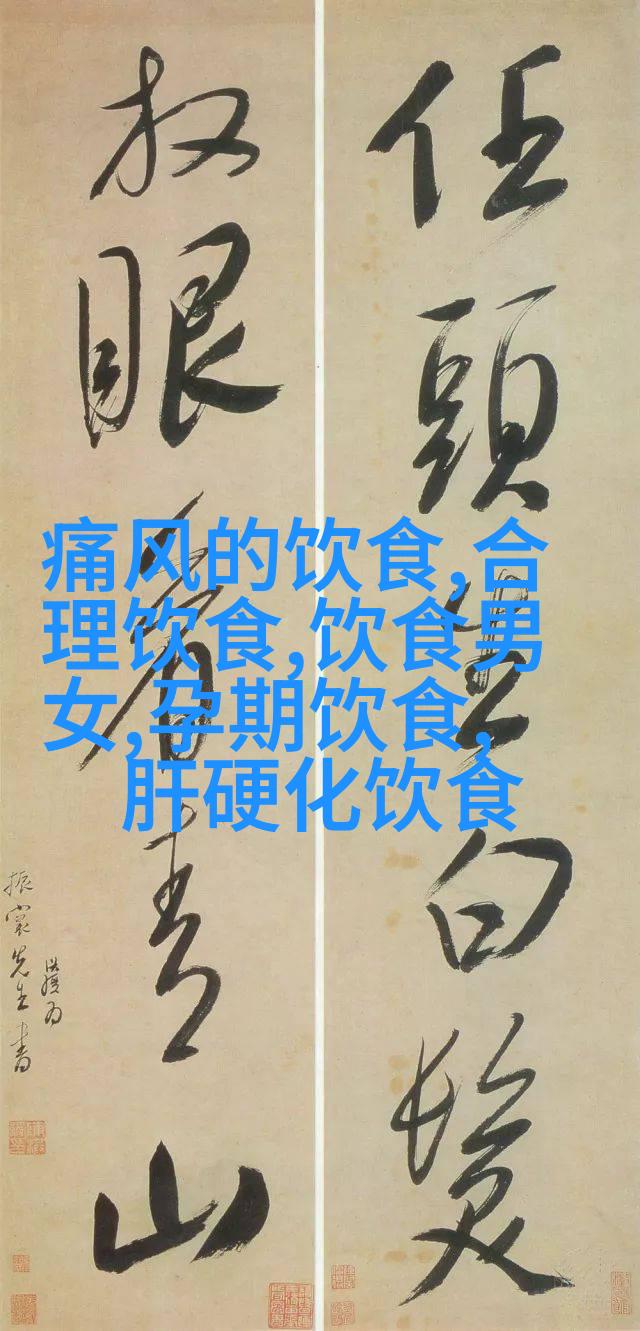 任頭生白髮
放眼看青山
振裳先生書
痛风的饮食,合
理饮食,饮食男
女,孕期饮食,
肝硬化饮食